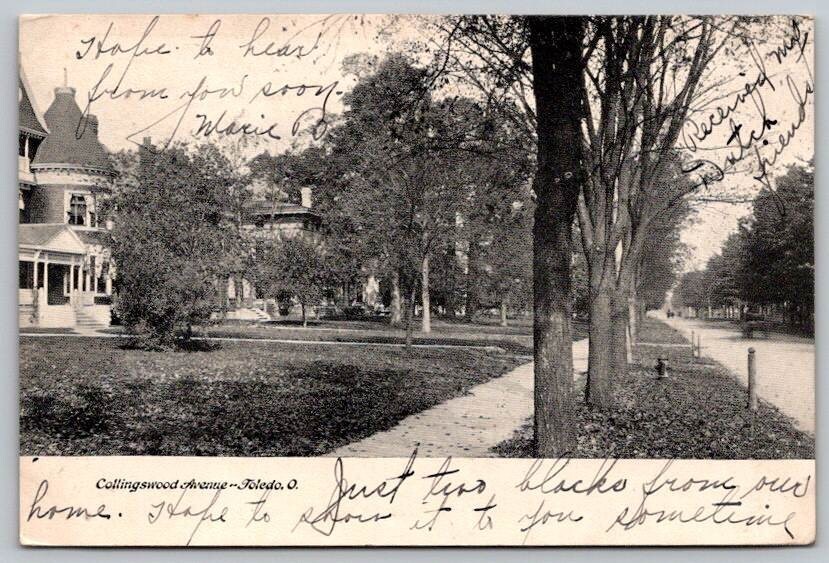 Hope to hear
from you soon.
Marie B
Received my
Dutch
friends
Collingswood Avenue--Toledo, O.
Just two blocks from our
home. Hope to show it to you sometime